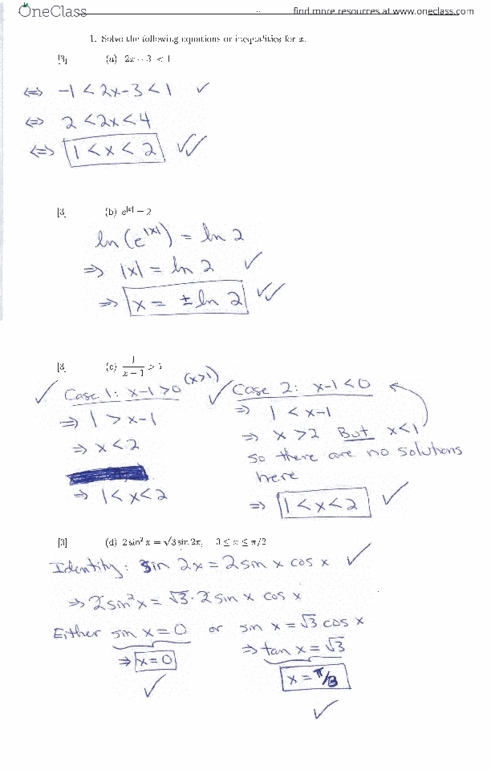 OneClass
find more resources at www.oneclass.com
1. Solve the following equations or inequalities for x.
[3] (a) 2x - 3 < 1
⇔ -1 < 2x-3 < 1 ✓
⇔ 2 < 2x < 4
⇔ 1 < x < 2 ✓✓
(b) e^|x| = 2
ln(e^|x|) = ln 2
⇒ |x| = ln 2 ✓
⇒ x = ± ln 2 ✓✓
(c) 1/(x - 1) > 1
✓ Case 1: x-1 > 0 (x>1)
⇒ 1 > x-1
⇒ x < 2
⇒ 1 < x < 2
✓ Case 2: x-1 < 0
⇒ 1 < x-1
⇒ x > 2 But x < 1
so there are no solutions
here
⇒ 1 < x < 2 ✓
[3] (d) 2 sin² x = √3 sin 2x, ≤ x ≤ π/2
Identity: sin 2x = 2 sin x cos x ✓
⇒ 2 sin² x = √3 · 2 sin x cos x
Either sin x = 0 or sin x = √3 cos x
⇒ x = 0 ⇒ tan x = √3
✓ x = π/3
✓